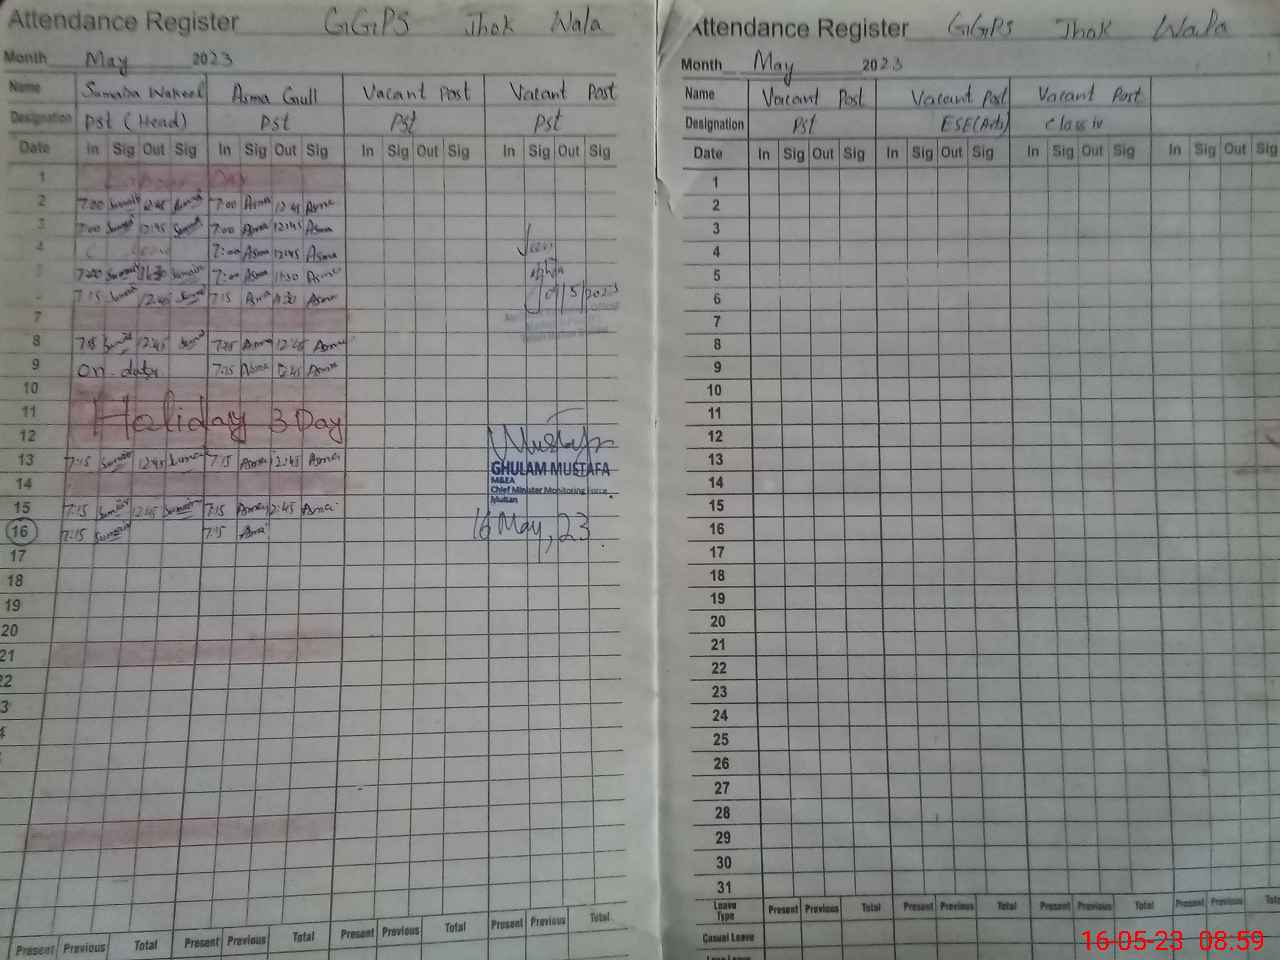 Attendance Register GGPS Jhok Wala
Month May 2023
Name Sumaira Wakeel Asma Gull Vacant Post Vacant Post
Designation Pst (Head) Pst Pst Pst
Date In Sig Out Sig In Sig Out Sig In Sig Out Sig In Sig Out Sig
1 Labour Day
2 7:00 12:45 7:00 Asma 12:45 Asma
3 7:00 12:45 7:00 Asma 12:45 Asma
4 7:00 Asma 12:45 Asma
7:00 11:30 7:00 Asma 11:30 Asma
7:15 12:45 7:15 Asma Asma
7
8 12:45 7:15 Asma 12:45 Asma
9 on duty 7:15 Asma Asma
10/5/2023
10
11 Holiday 3 Day
12
13 7:15 12:45 7:15 Asma 12:45 Asma
14
15 7:15 12:45 7:15 Asma 12:45 Asma
16 7:15 7:15 Asma
Mustafa
GHULAM MUSTAFA
M&EA
Chief Minister Monitoring Force
Multan
16 May, 23
17
18
19
20
21
22
3
Present Previous Total Present Previous Total Present Previous Total Present Previous Total
Attendance Register GGPS Jhok Wala
Month May 2023
Name Vacant Post Vacant Post Vacant Post
Designation Pst ESE(Arts) Class iv
Date In Sig Out Sig In Sig Out Sig In Sig Out Sig In Sig Out Sig
1
2
3
4
5
6
7
8
9
10
11
12
13
14
15
16
17
18
19
20
21
22
23
24
25
26
27
28
29
30
31
Leave Type Present Previous Total Present Previous Total Present Previous Total Present Previous
Casual Leave
16-05-23 08:59